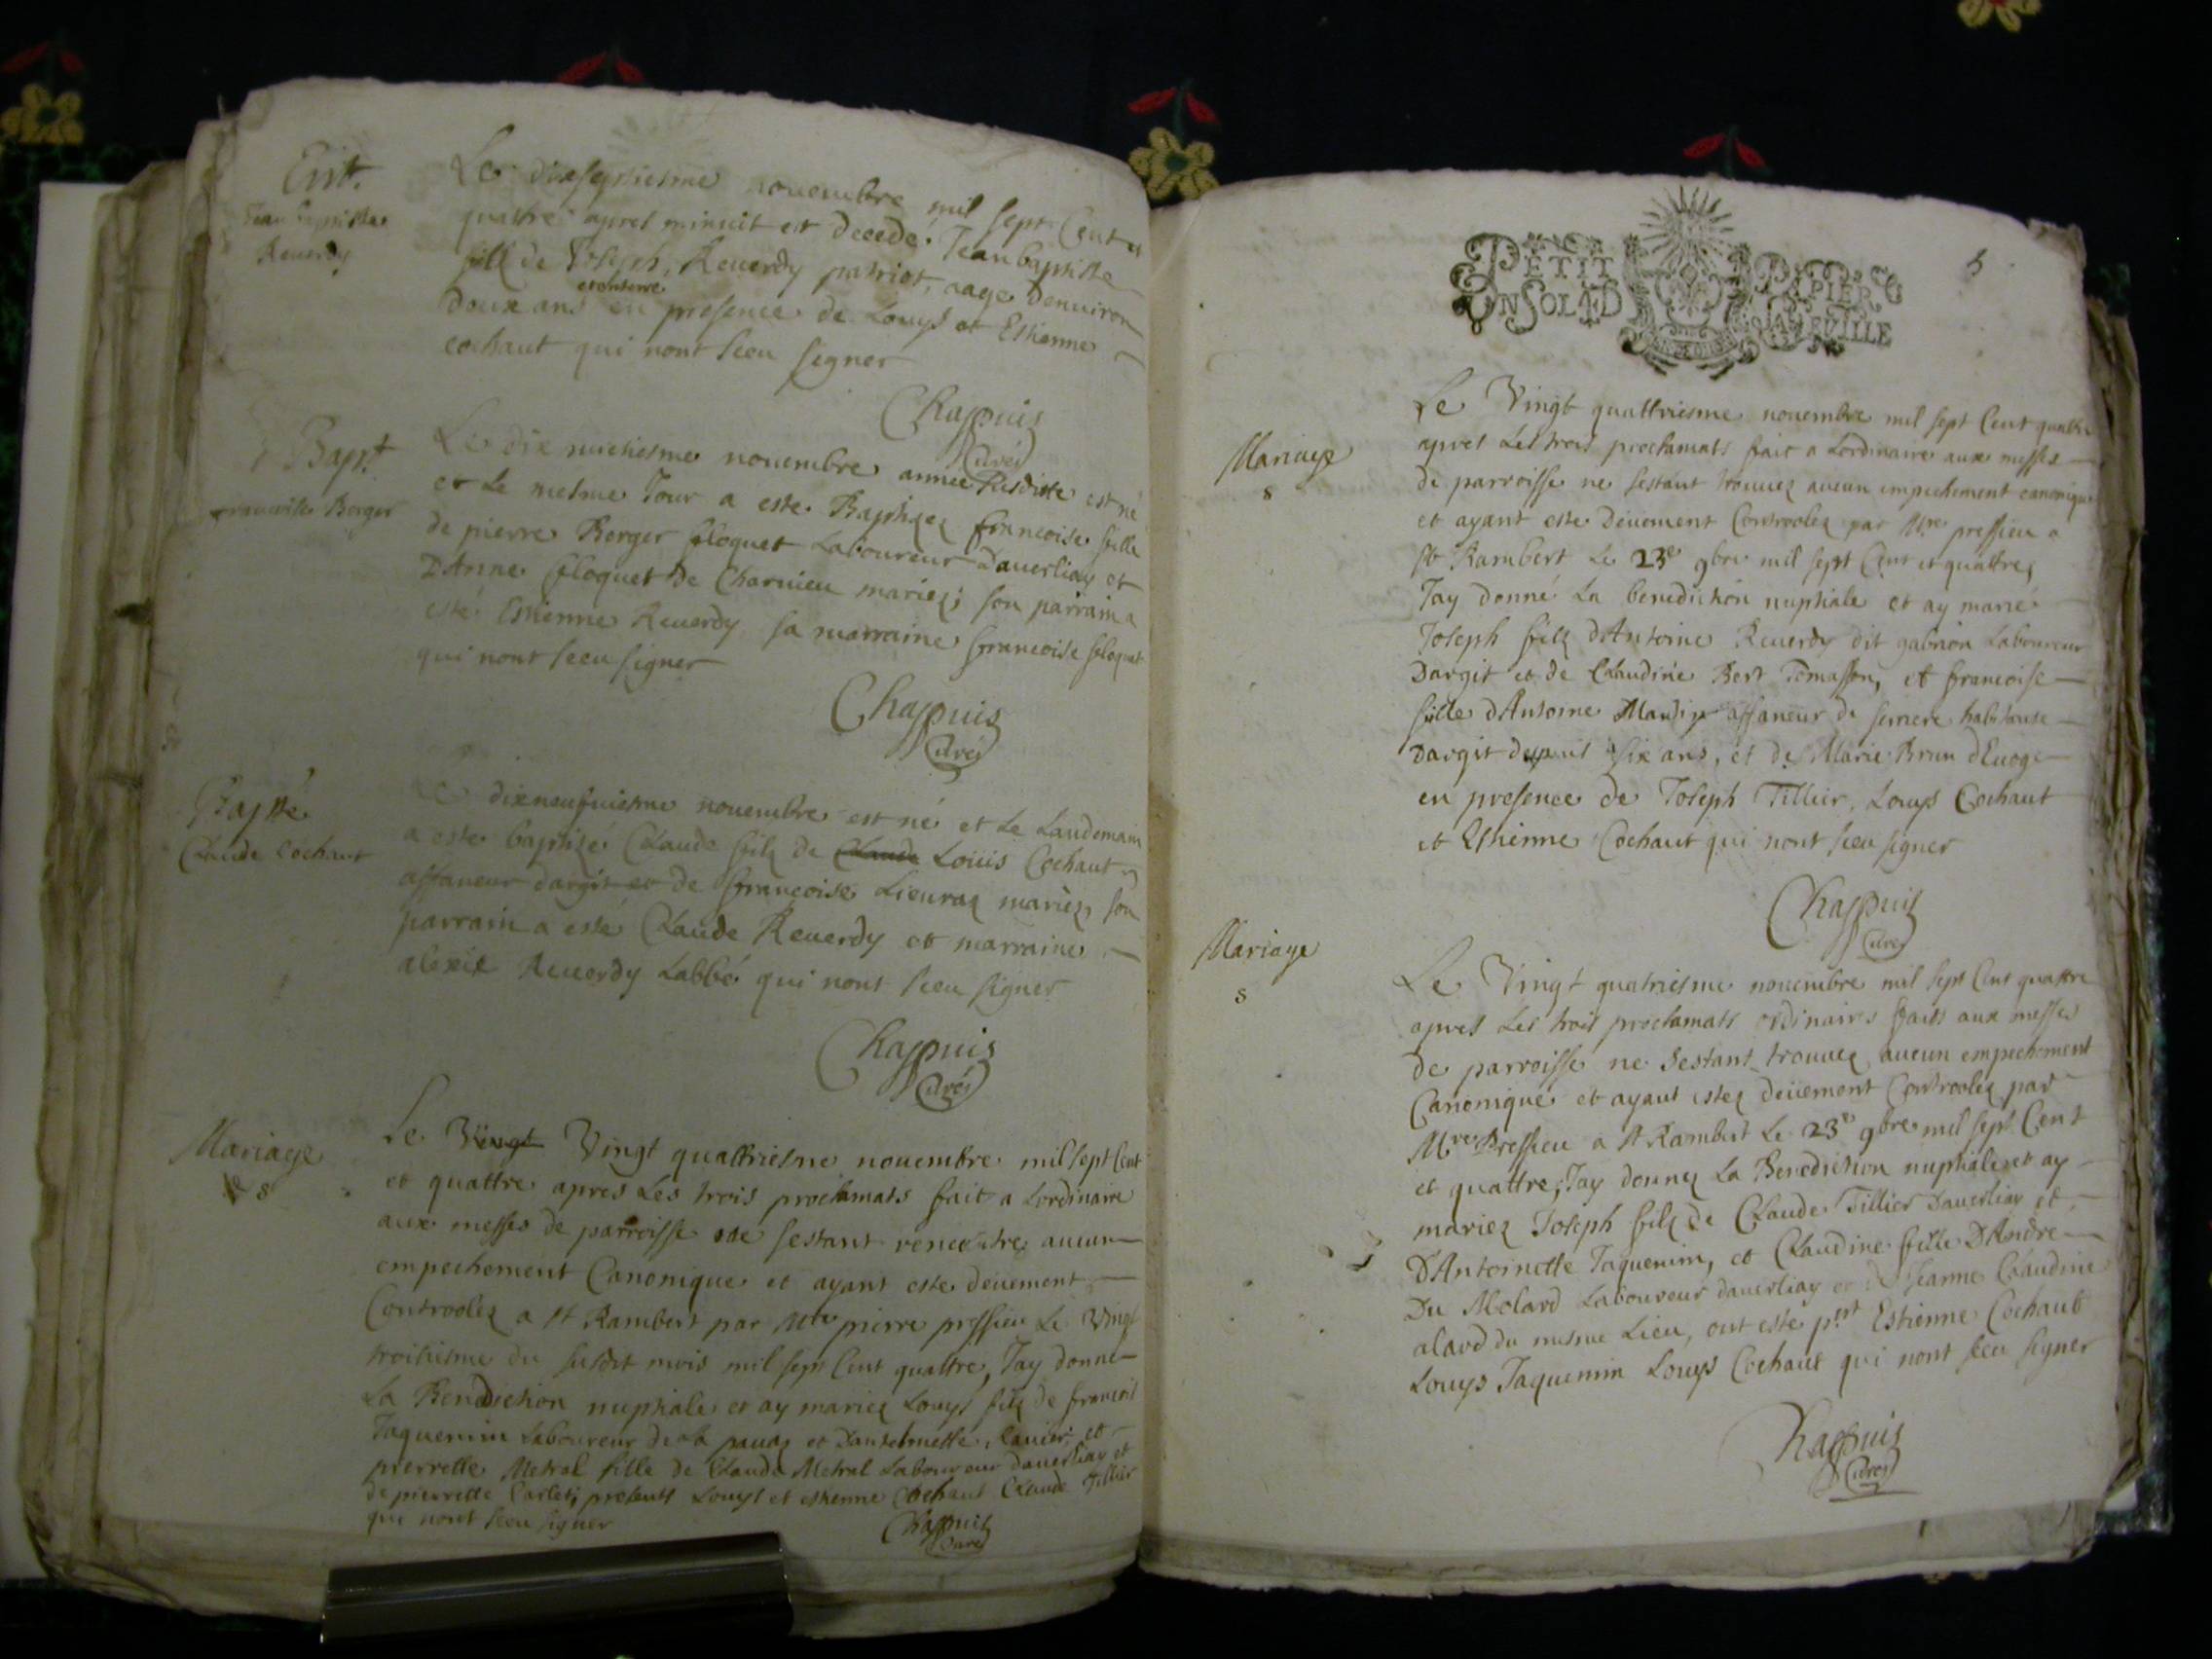 Ent.
Jean baptiste
Reuerdy
Le dixseptiesme nouembre mil sept Cent et
quattre apres minuit est decedé Jean baptiste
filz de Joseph Reuerdy patriot, aage denuiron
et enterre
deux ans en presence de Louys et Estienne
cochaut qui nont sceu signer
Chappuis
Curé
Bapt
francoise Berger
Le dix huictiesme nouembre année susditte est né
et le mesme Jour a este Baptizez francoise fille
de pierre Berger floquet Laboureur dauerliay et
DAnne floquet de Charuieu mariez; son parrain a
esté Estienne Reuerdy sa marraine francoise floquet
qui nont sceu signer
Chappuis
Curé
Baptê
Claude Cochaut
Le dixneufuiesme nouembre est né et le Landemain
a este baptizé Claude filz de Claude Louis Cochaut
affaneur dargit et de francoise Lieuraz mariez, son
parrain a esté Claude Reuerdy et marraine
alexie Reuerdy Labbé qui nont sceu signer
Chappuis
Curé
Mariage
s
Le Vingt Vingt quattriesme nouembre mil sept Cent
et quattre apres Les trois proclamats fait a Lordinaire
aux messes de parroisse ne sestant rencontre aucun
empechement Canonique et ayant este deuement
Controolez a St Rambert par Mre pierre pressieu Le Vingt
troisiesme du susdit mois mil sept Cent quattre, Jay donne
La Benediction nuptiale et ay mariez Louys filz de francois
Jaquemin Laboureur de la pauaz et Dantoinette et
pierrette Metral fille de Claude Metral Laboureur dauerliay et
de pierrette Carlet; presents Louys et estienne Cochaut Claude Tillier
qui nont sceu signer
Chappuis
Curé
PETIT PAPIER
UN SOL LA FEUILLE
5
Mariage
s
Le Vingt quattriesme nouembre mil sept Cent quattre
apres Les trois proclamats fait a Lordinaire aux messes
de parroisse ne sestant trouuez aucun empechement canonique
et ayant este deüement Controolez par Mre pressieu a
St Rambert Le 23e 9bre mil sept Cent et quattre,
Jay donné La benediction nuptiale et ay marié
Joseph filz dAntoine Reuerdy dit gabrion Laboureur
Dargit et de Claudine Bert Tomasson, et francoise
fille dAntoine Maudin affaneur de serriere habitante
Dargit depuis six ans, et de Marie Brun dEuoge
en presence de Joseph Tillier, Louys Cochaut
et Estienne Cochaut qui nont sceu signer
Chappuis
Curé
Mariage
s
Le Vingt quatriesme nouembre mil sept Cent quattre
apres Les trois proclamats ordinaires faits aux messes
de parroisse ne sestant trouuez aucun empechement
Canonique et ayant estez deüement Controolez par
Mre Pressieu a St Rambert Le 23e 9bre mil sept Cent
et quattre, Jay donnez La Benediction nuptiale et ay
mariez Joseph filz de Claude Tillier Dauerliay et
DAntoinette Jaquemin, et Claudine fille DAndre
Du Molard Laboureur dauerliay et de Jeanne Claudine
alard du mesme Lieu, ont esté pnt Estienne Cochaut
Louys Jaquemin Louys Cochaut qui nont sceu signer
Chappuis
Curé